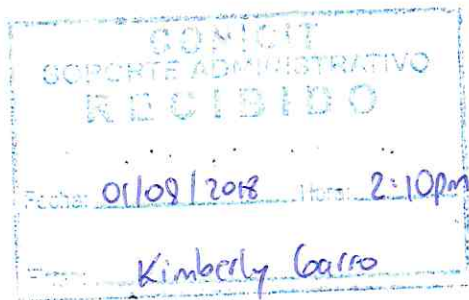 CONICIT
SOPORTE ADMINISTRATIVO
RECIBIDO
Fecha: 01/08/2018 Hora: 2:10pm
Kimberly Garro